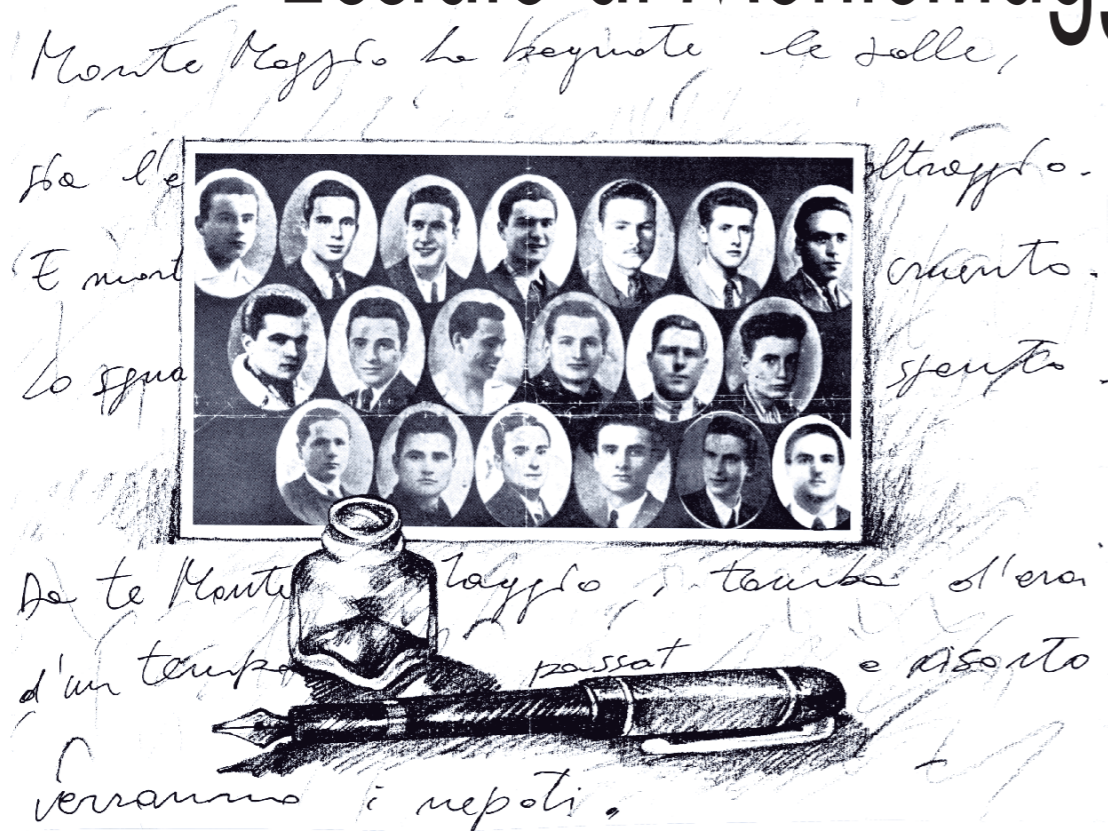 Monte Maggio ha bagnate le zolle,
sia l'e oltraggio.
E mort cruento.
Lo sgua spento.
Da te Monte Maggio, tomba d'eroi
d'un tempo passat e risorto
verranno i nepoti.